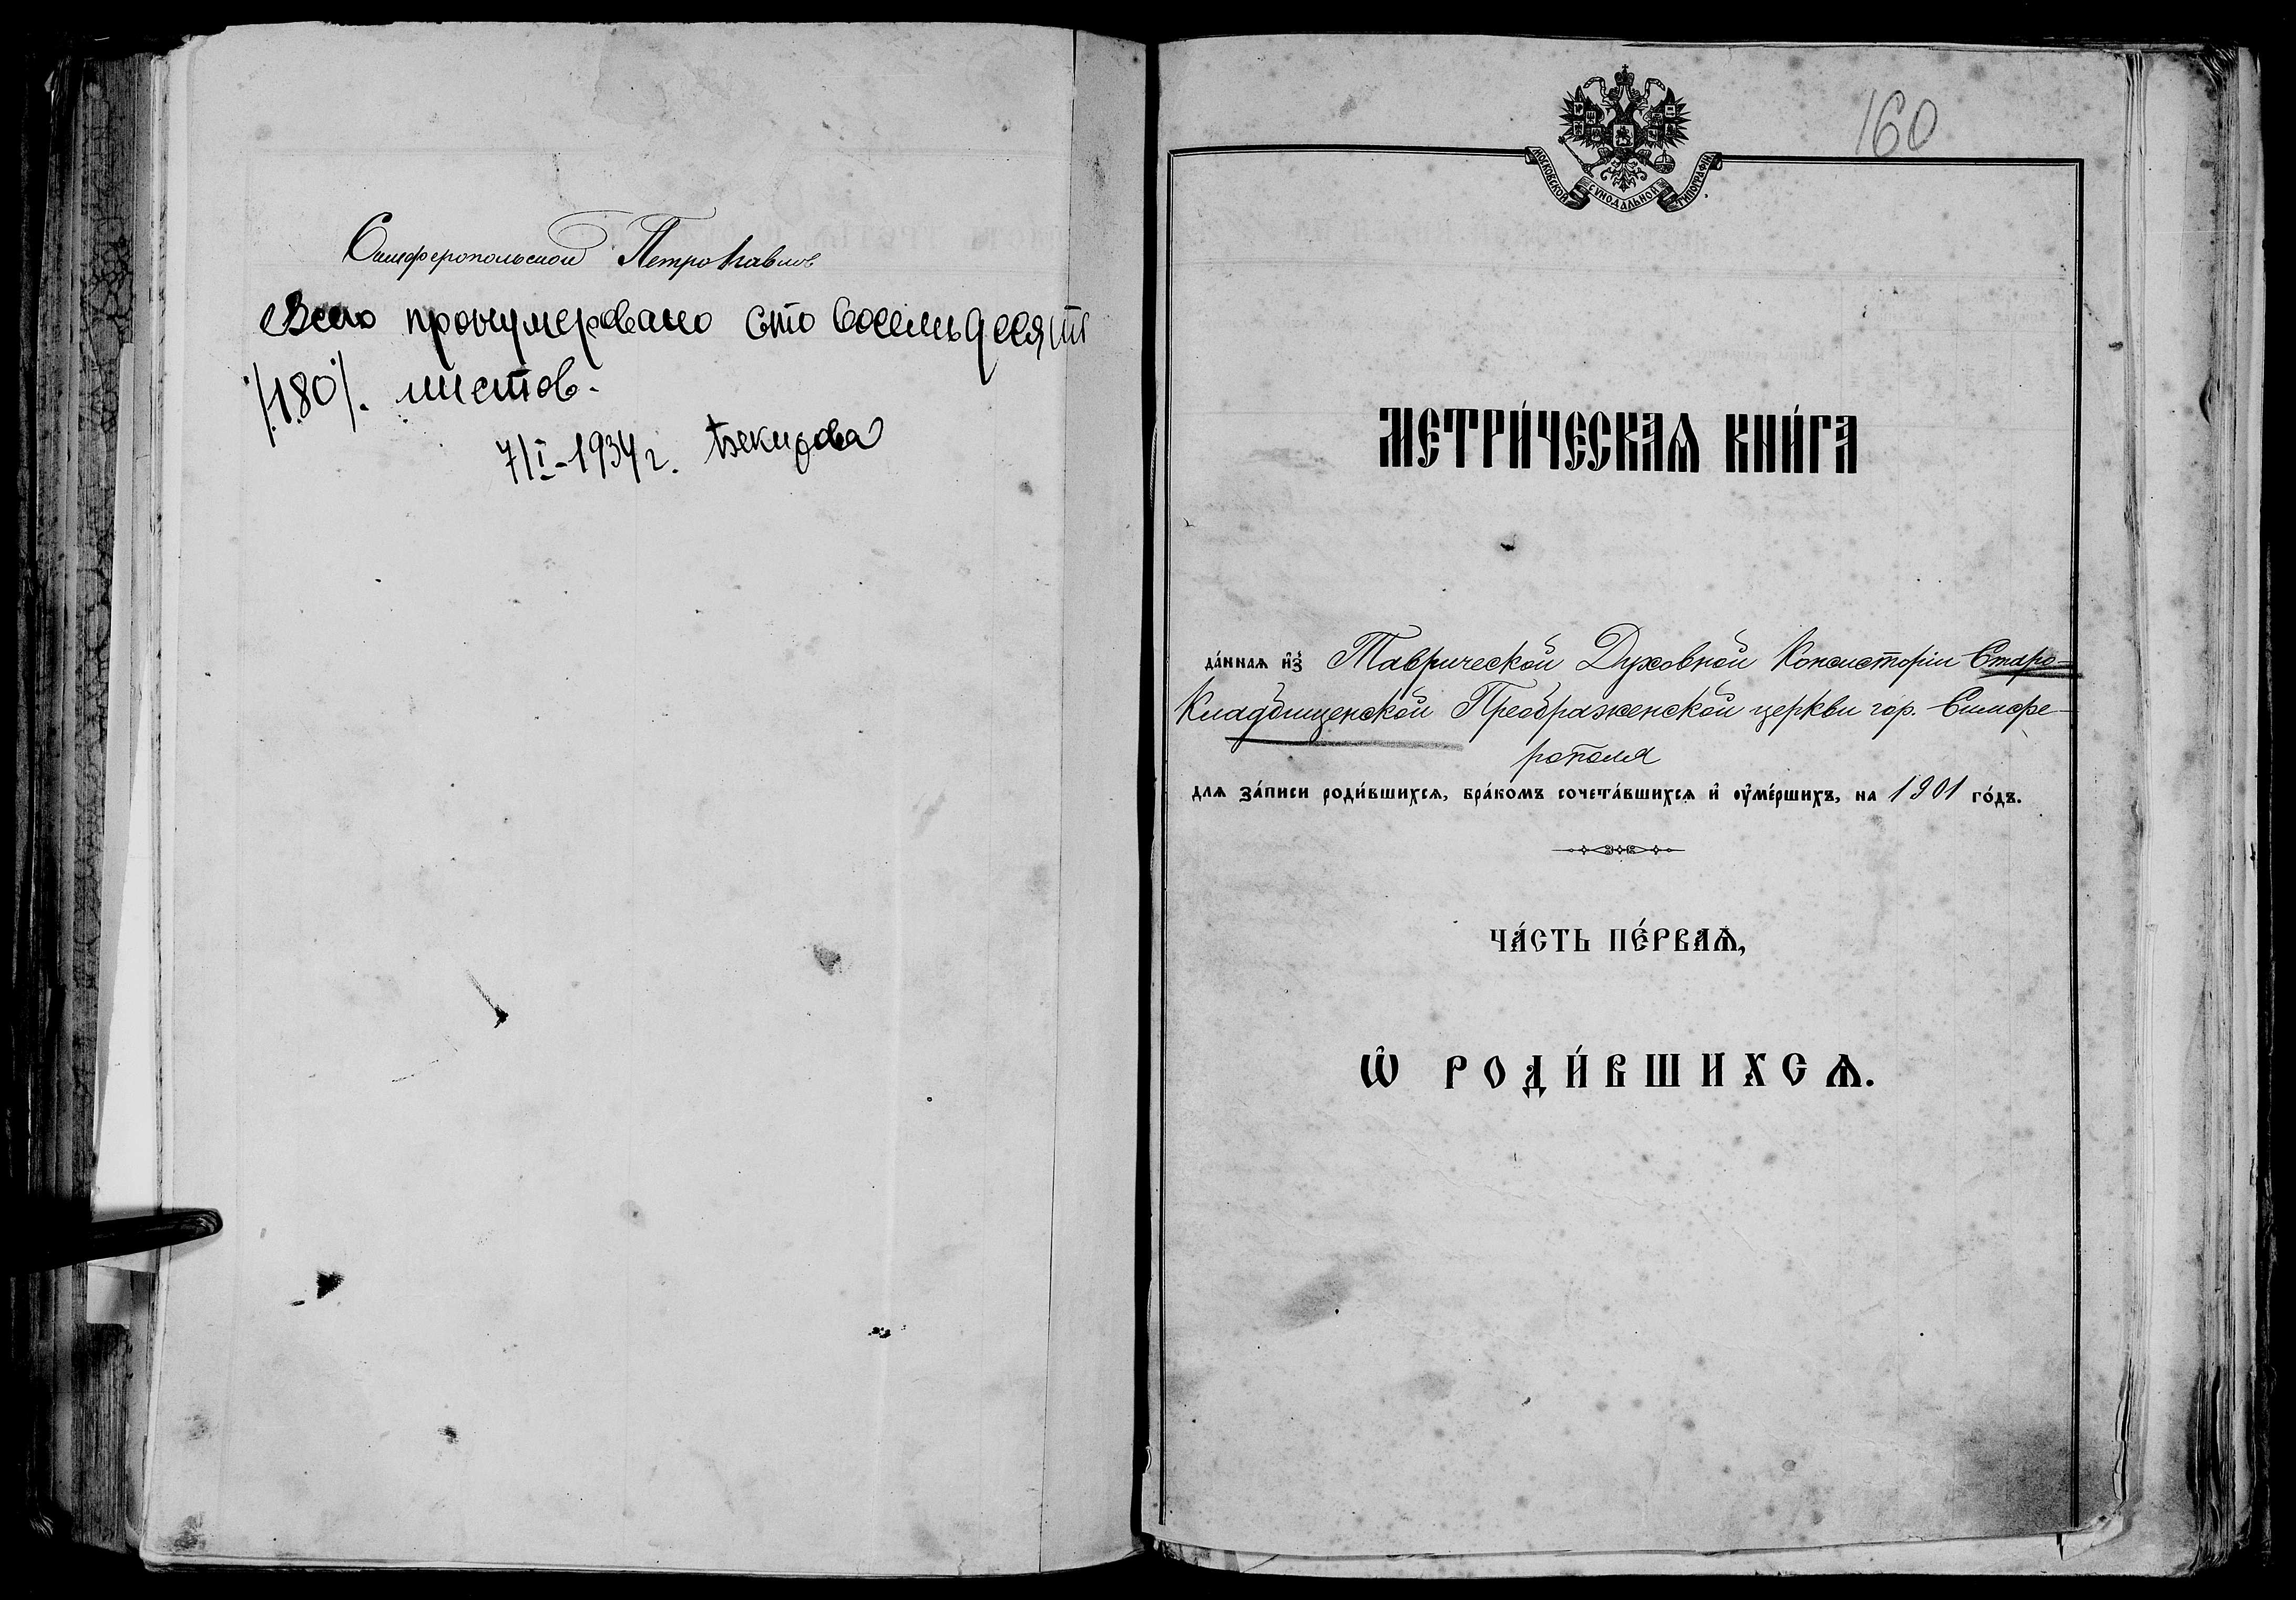 Симферопольской Петропавлов
Всего пронумеровано сто восемьдесят
/180/. листов.
7/I-1934 г. Бекирова
160
МОСКОВСКОЙ СѴНОДАЛЬНОЙ ТИПОГРАФІИ
МЕТРИ́ЧЕСКАѦ КНИ́ГА
да́ннаѧ и҆з̾ Таврической Духовной Консисторіи Старо-
Кладбищенской Преображенской церкви гор. Симфе-
рополя
для за́писи роди́вшихсѧ, бра́комъ сочета́вшихсѧ и҆ ᲂу҆ме́ршихъ, на 1901 го́дъ.
ЧА́СТЬ ПЕ́РВАѦ,
Ѡ҆ РОДИ́ВШИХСѦ.